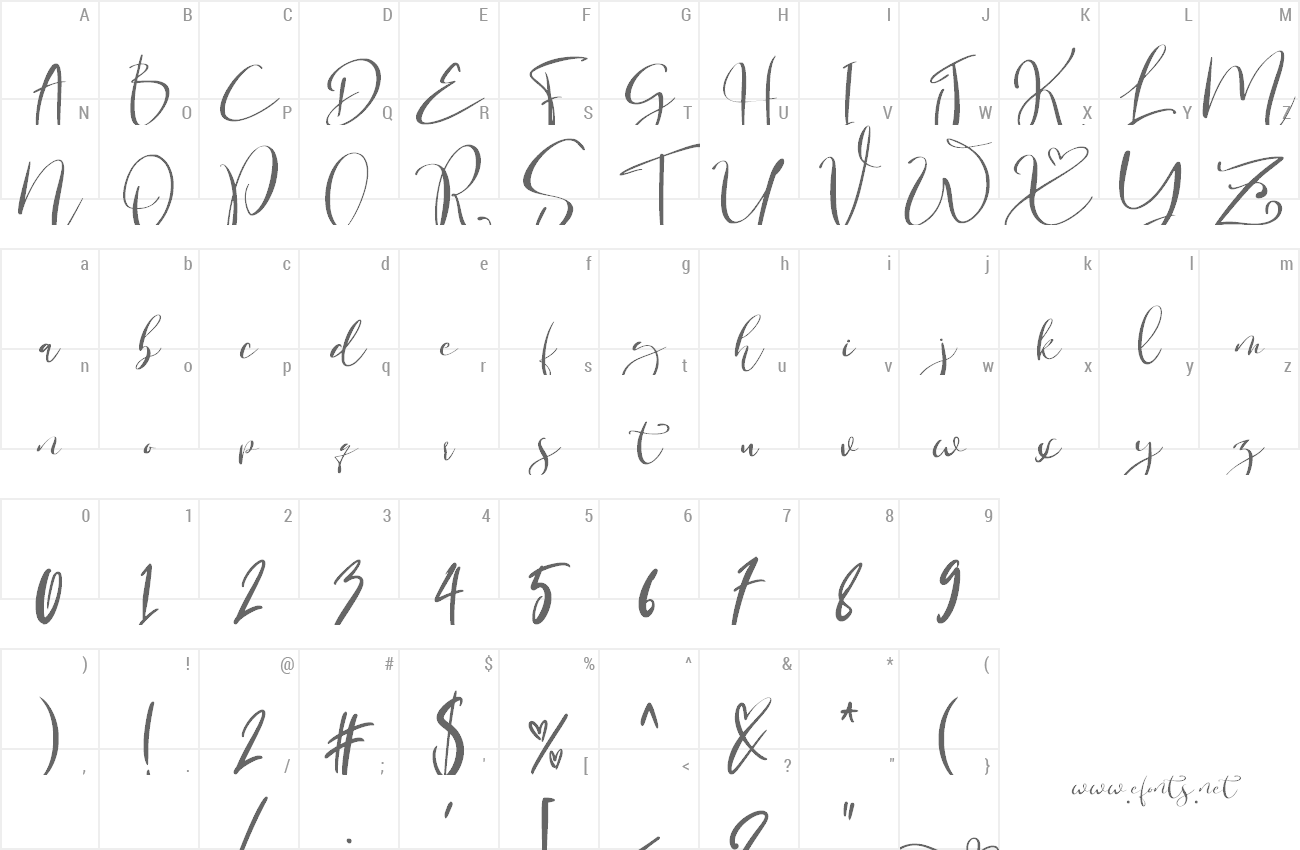 A B C D E F G H I J K L M
A B C D E F G H I J K L M
N O P Q R S T U V W X Y Z
N O P Q R S T U V W X Y Z
a b c d e f g h i j k l m
a b c d e f g h i j k l m
n o p q r s t u v w x y z
n o p q r s t u v w x y z
0 1 2 3 4 5 6 7 8 9
0 1 2 3 4 5 6 7 8 9
) ! @ # $ % ^ & * (
) ! 2 # $ % ^ & * (
, . / ; ' [ < ? " }
/ ; ' [ < ? "
www.efonts.net